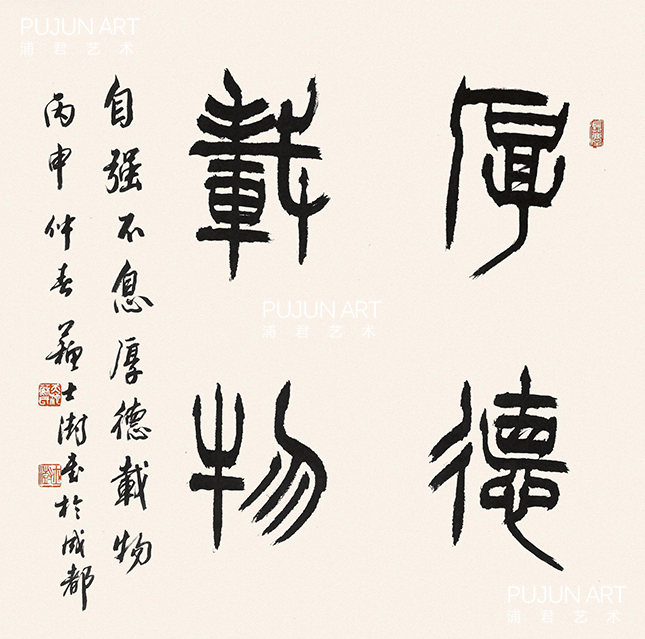 PUJUN ART
浦君艺术
厚德
載物
自强不息厚德載物
丙申仲春蘇士澍書於成都
PUJUN ART
浦君艺术
PUJUN ART
浦君艺术